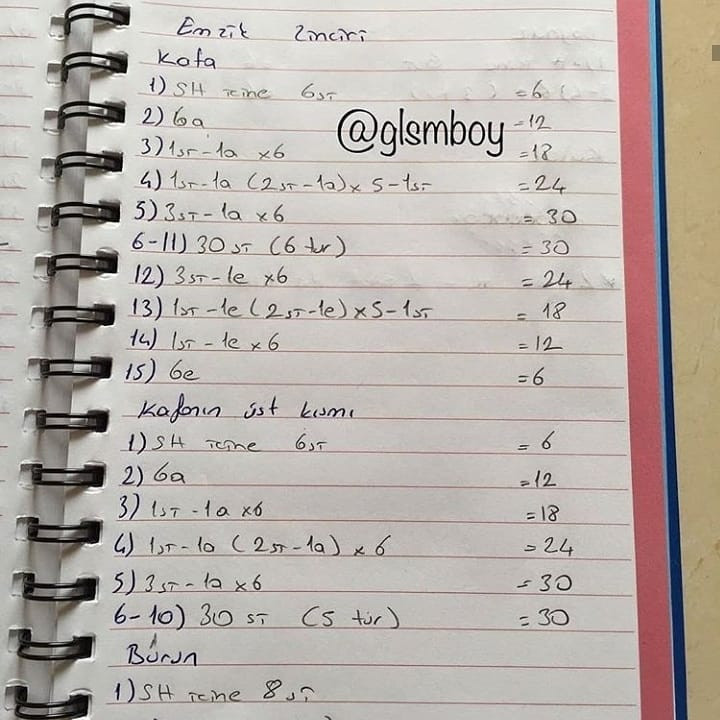 Emzik Zinciri
Kafa
1) SH içine 6sт =6
2) 6a =12
@glsmboy
3) 1sт-1a x6 =18
4) 1sт-1a (2sт-1a)x 5-1sт =24
5) 3sт-1a x6 =30
6-11) 30 sт (6 tur) =30
12) 3sт-1e x6 =24
13) 1sт-1e (2sт-1e)x5-1sт = 18
14) 1sт-1e x6 =12
15) 6e =6
Kafanın üst kısmı
1) SH içine 6sт = 6
2) 6a =12
3) 1sт-1a x6 =18
4) 1sт-1a (2sт-1a) x 6 =24
5) 3sт-1a x6 =30
6-10) 30 sт (5 tur) =30
Burun
1) SH içine 8sт